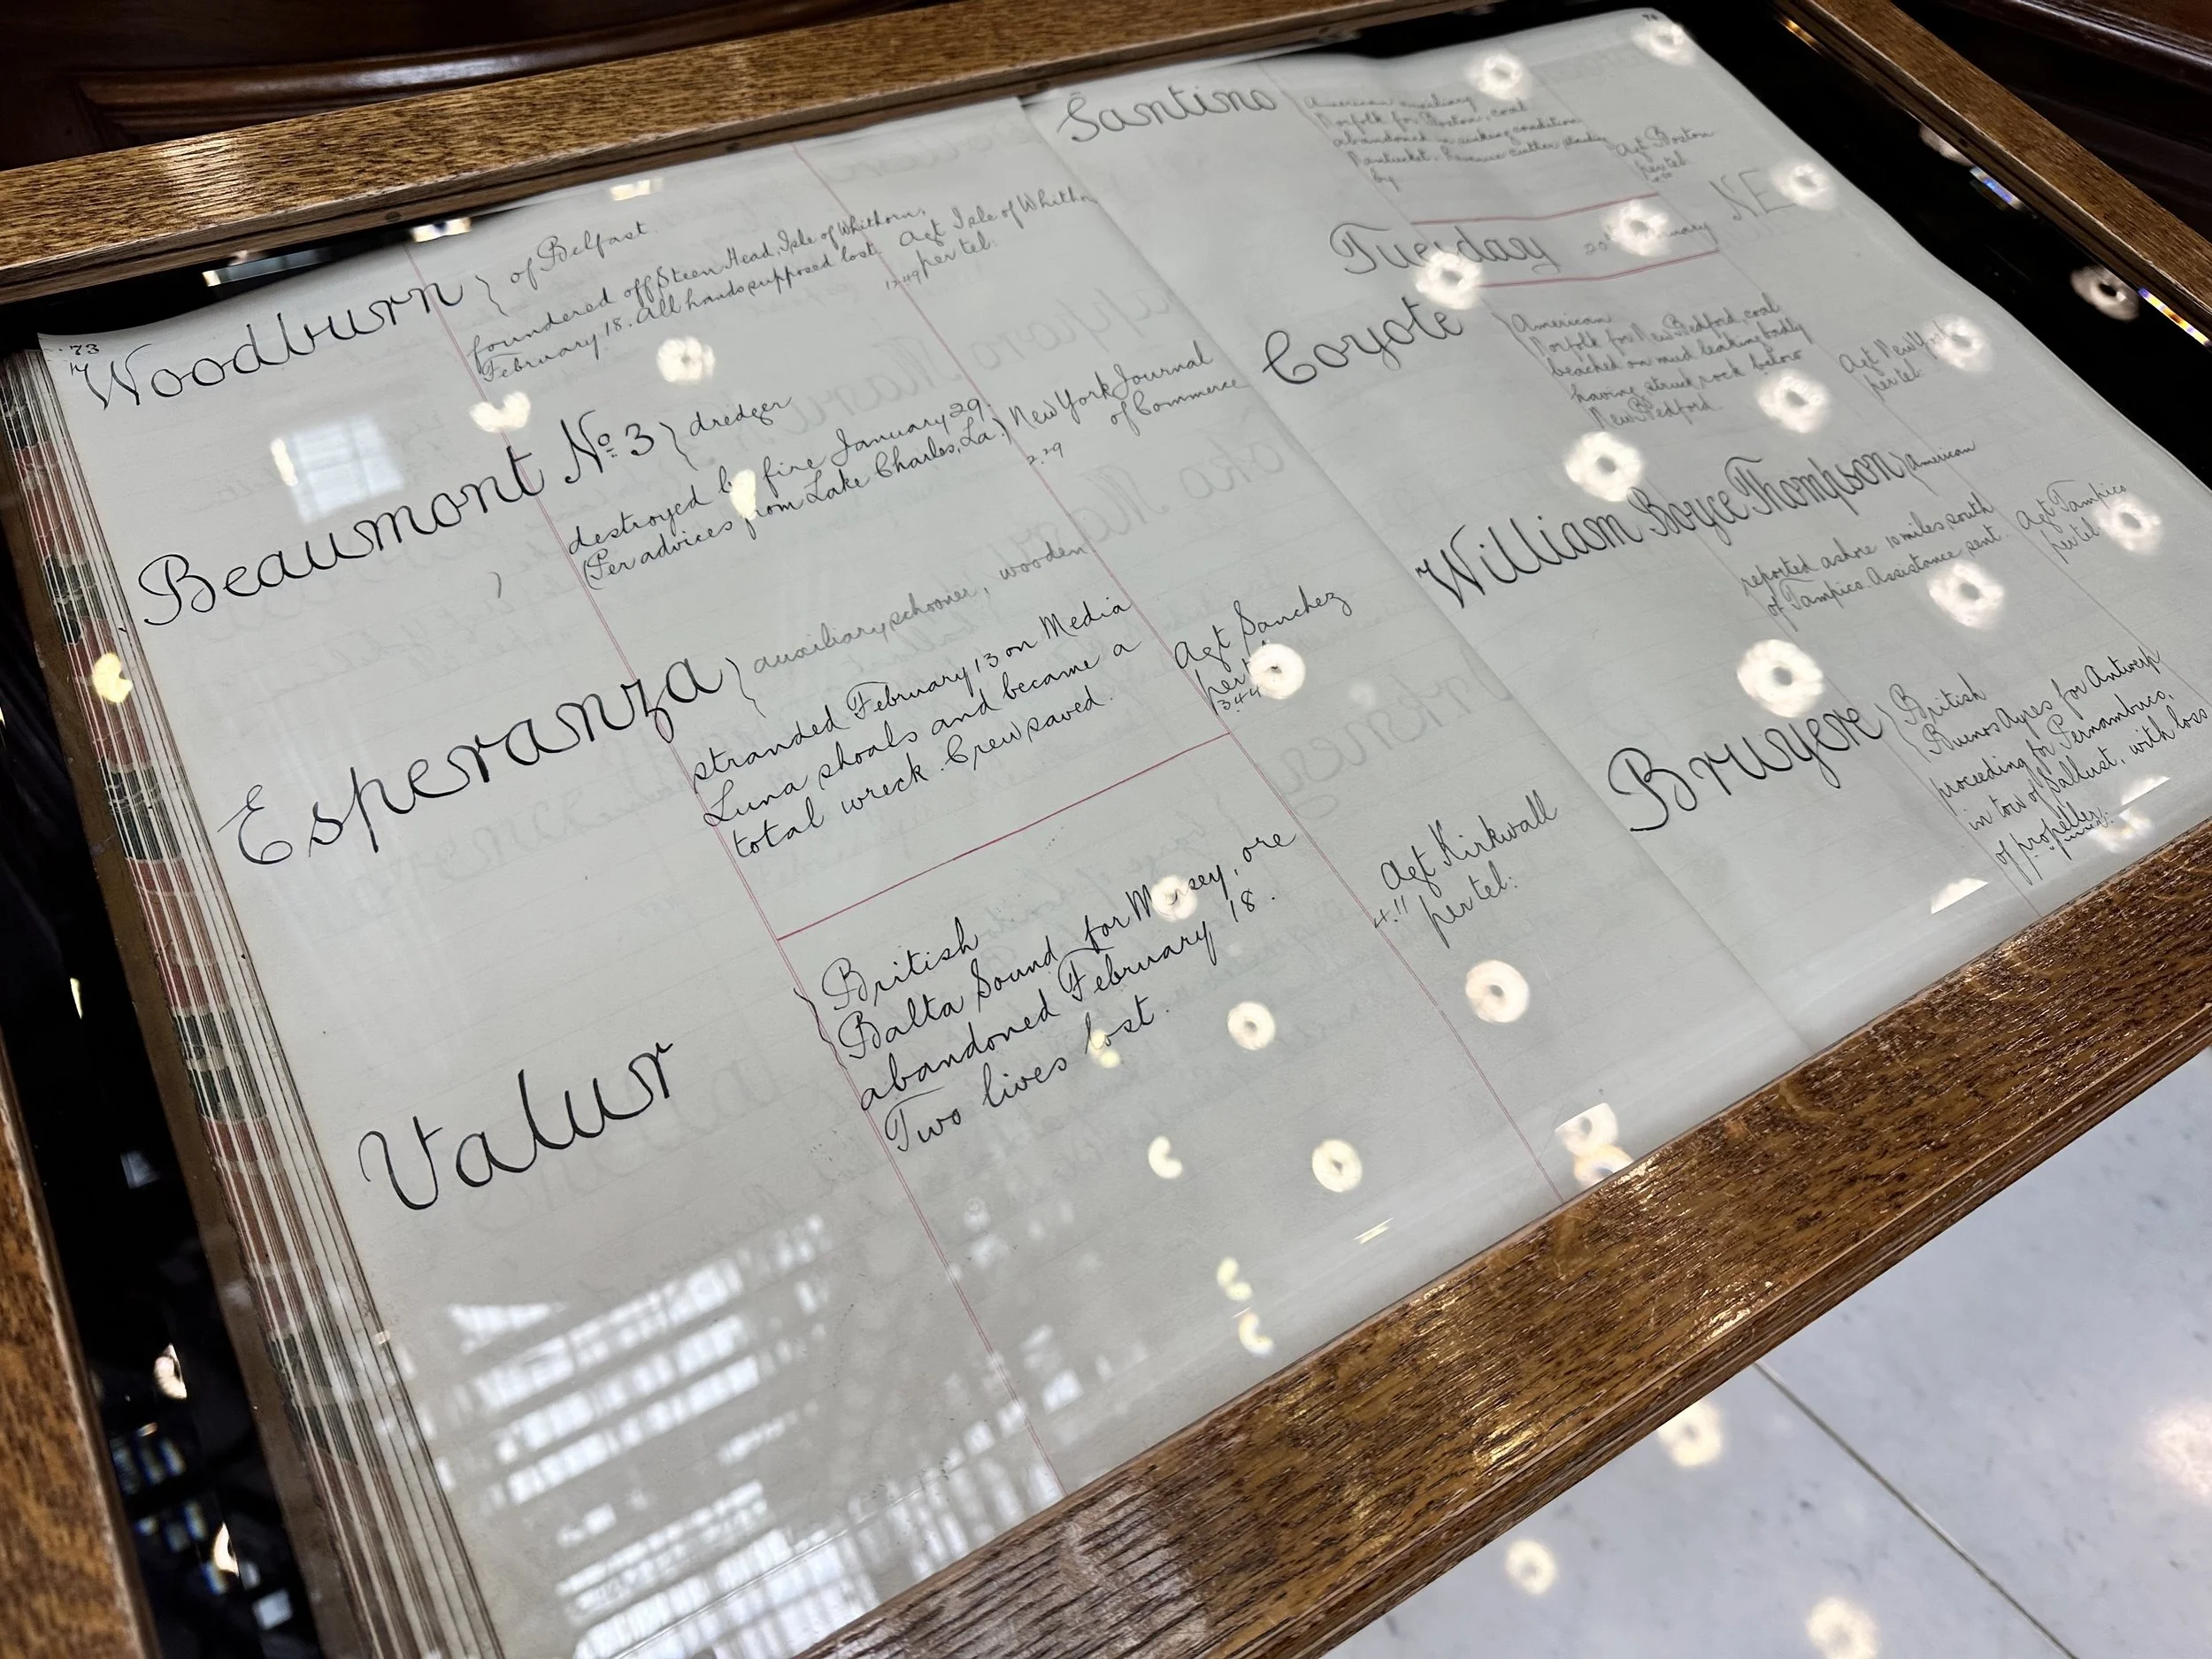 73
Woodburn } of Belfast.
foundered off Steen Head, Isle of Whithorn,
February 18. All hands supposed lost.
Agt Isle of Whithn
12.49 per tel:
Beaumont No. 3 } dredger
destroyed by fire January 29.
(Per advices from Lake Charles, La.)
New York Journal
of Commerce
2.29
Esperanza } auxiliary schooner, wooden
stranded February 13 on Media
Luna shoals and became a
total wreck. Crew saved.
Agt Sanchez
per tel
3.44
Valur
British
Balta Sound for Mersey, ore
abandoned February 18.
Two lives lost.
Agt Kirkwall
4.11 per tel:
74
Santino
American auxiliary
Norfolk for Boston, coal
abandoned in sinking condition
Nantucket. Revenue cutter standing
by
Agt Boston
per tel
Tuesday 20th February NE
Coyote
American
Norfolk for New Bedford, coal
beached on mud leaking badly
having struck rock below
New Bedford.
Agt New York
per tel:
William Boyce Thompson } American
reported ashore 10 miles south
of Tampico. Assistance sent.
Agt Tampico
per tel:
Bruyere
British
Buenos Ayres for Antwerp
proceeding for Pernambuco,
in tow of Sallust, with loss
of propeller.